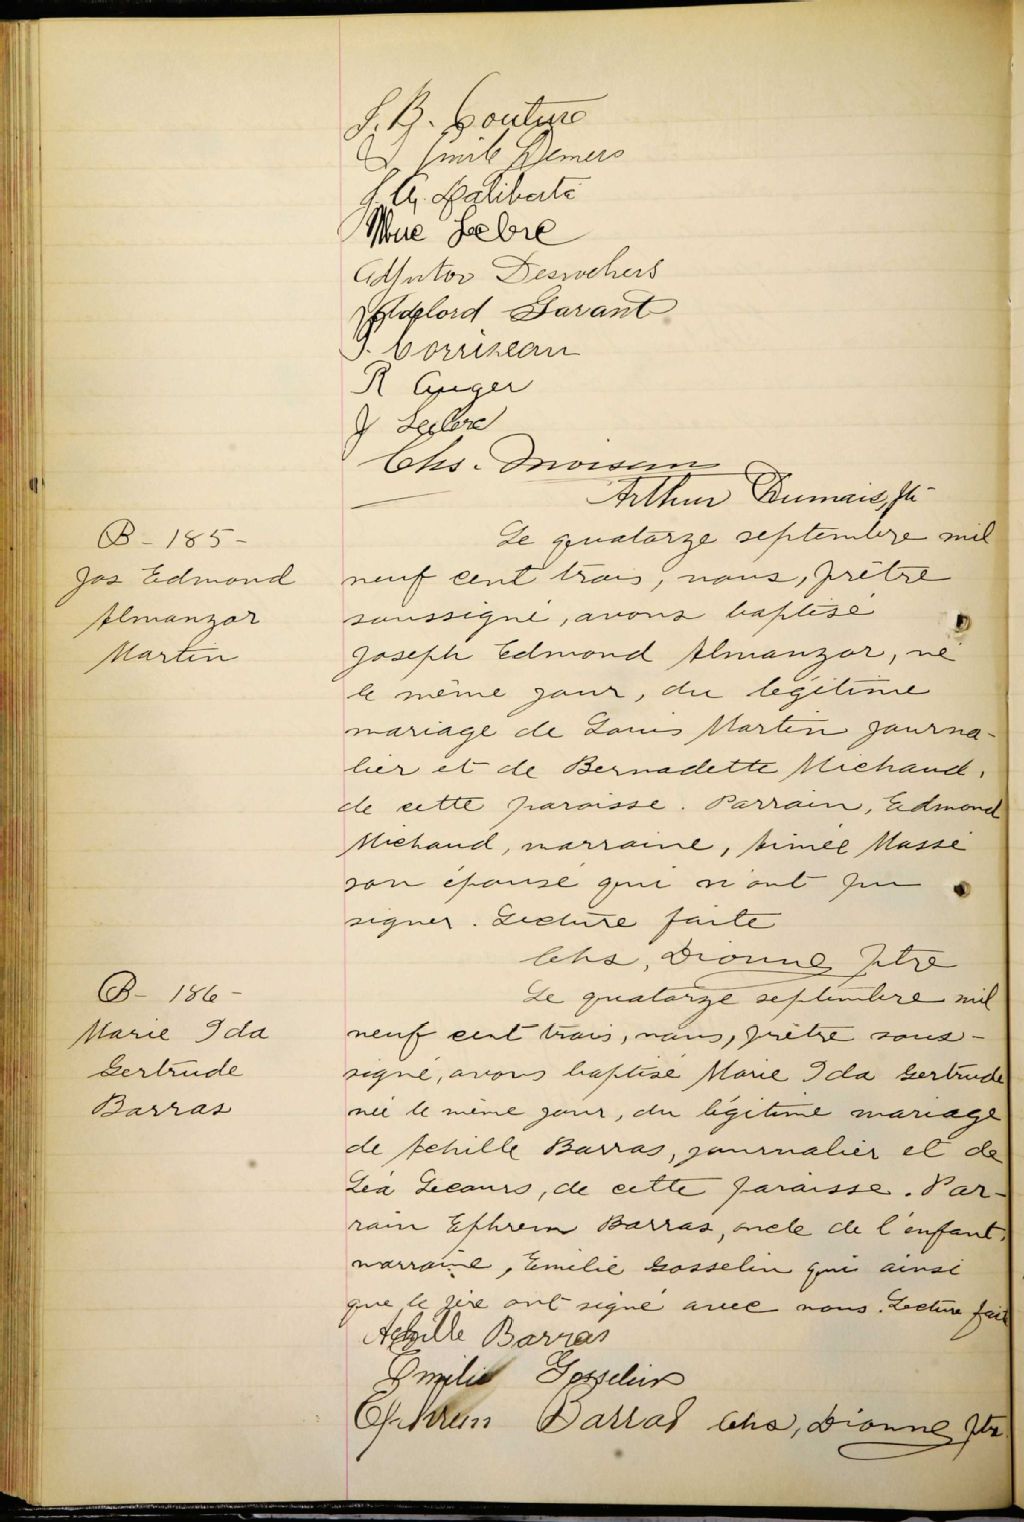 J. B. Couture
Emile Demers
J. A. Laliberté
Lebre
Adjutor Desrochers
Adélord Garant
J. Corriveau
R Auger
J Leclerc
Chs. Moisan
Arthur Dumais, ptr
B - 185 -
Jos Edmond
Almanzor
Martin
Le quatorze septembre mil
neuf cent trois, nous, prêtre
soussigné, avons baptisé
Joseph Edmond Almanzor, né
le même jour, du légitime
mariage de Louis Martin journa-
lier et de Bernadette Michaud,
de cette paroisse. Parrain, Edmond
Michaud, marraine, Aimée Massé
son épouse qui n'ont pu
signer. Lecture faite
Chs, Dionne ptre
B - 186 -
Marie Ida
Gertrude
Barras
Le quatorze septembre mil
neuf cent trois, nous, prêtre sous-
signé, avons baptisé Marie Ida Gertrude
née le même jour, du légitime mariage
de Achille Barras, journalier et de
Léa Lecours, de cette paroisse. Par-
rain Ephrem Barras, oncle de l'enfant,
marraine, Emilie Gosselin qui ainsi
que le père ont signé avec nous. Lecture faite
Achille Barras
Emilie Gosselin
Ephrem Barras Chs, Dionne ptre